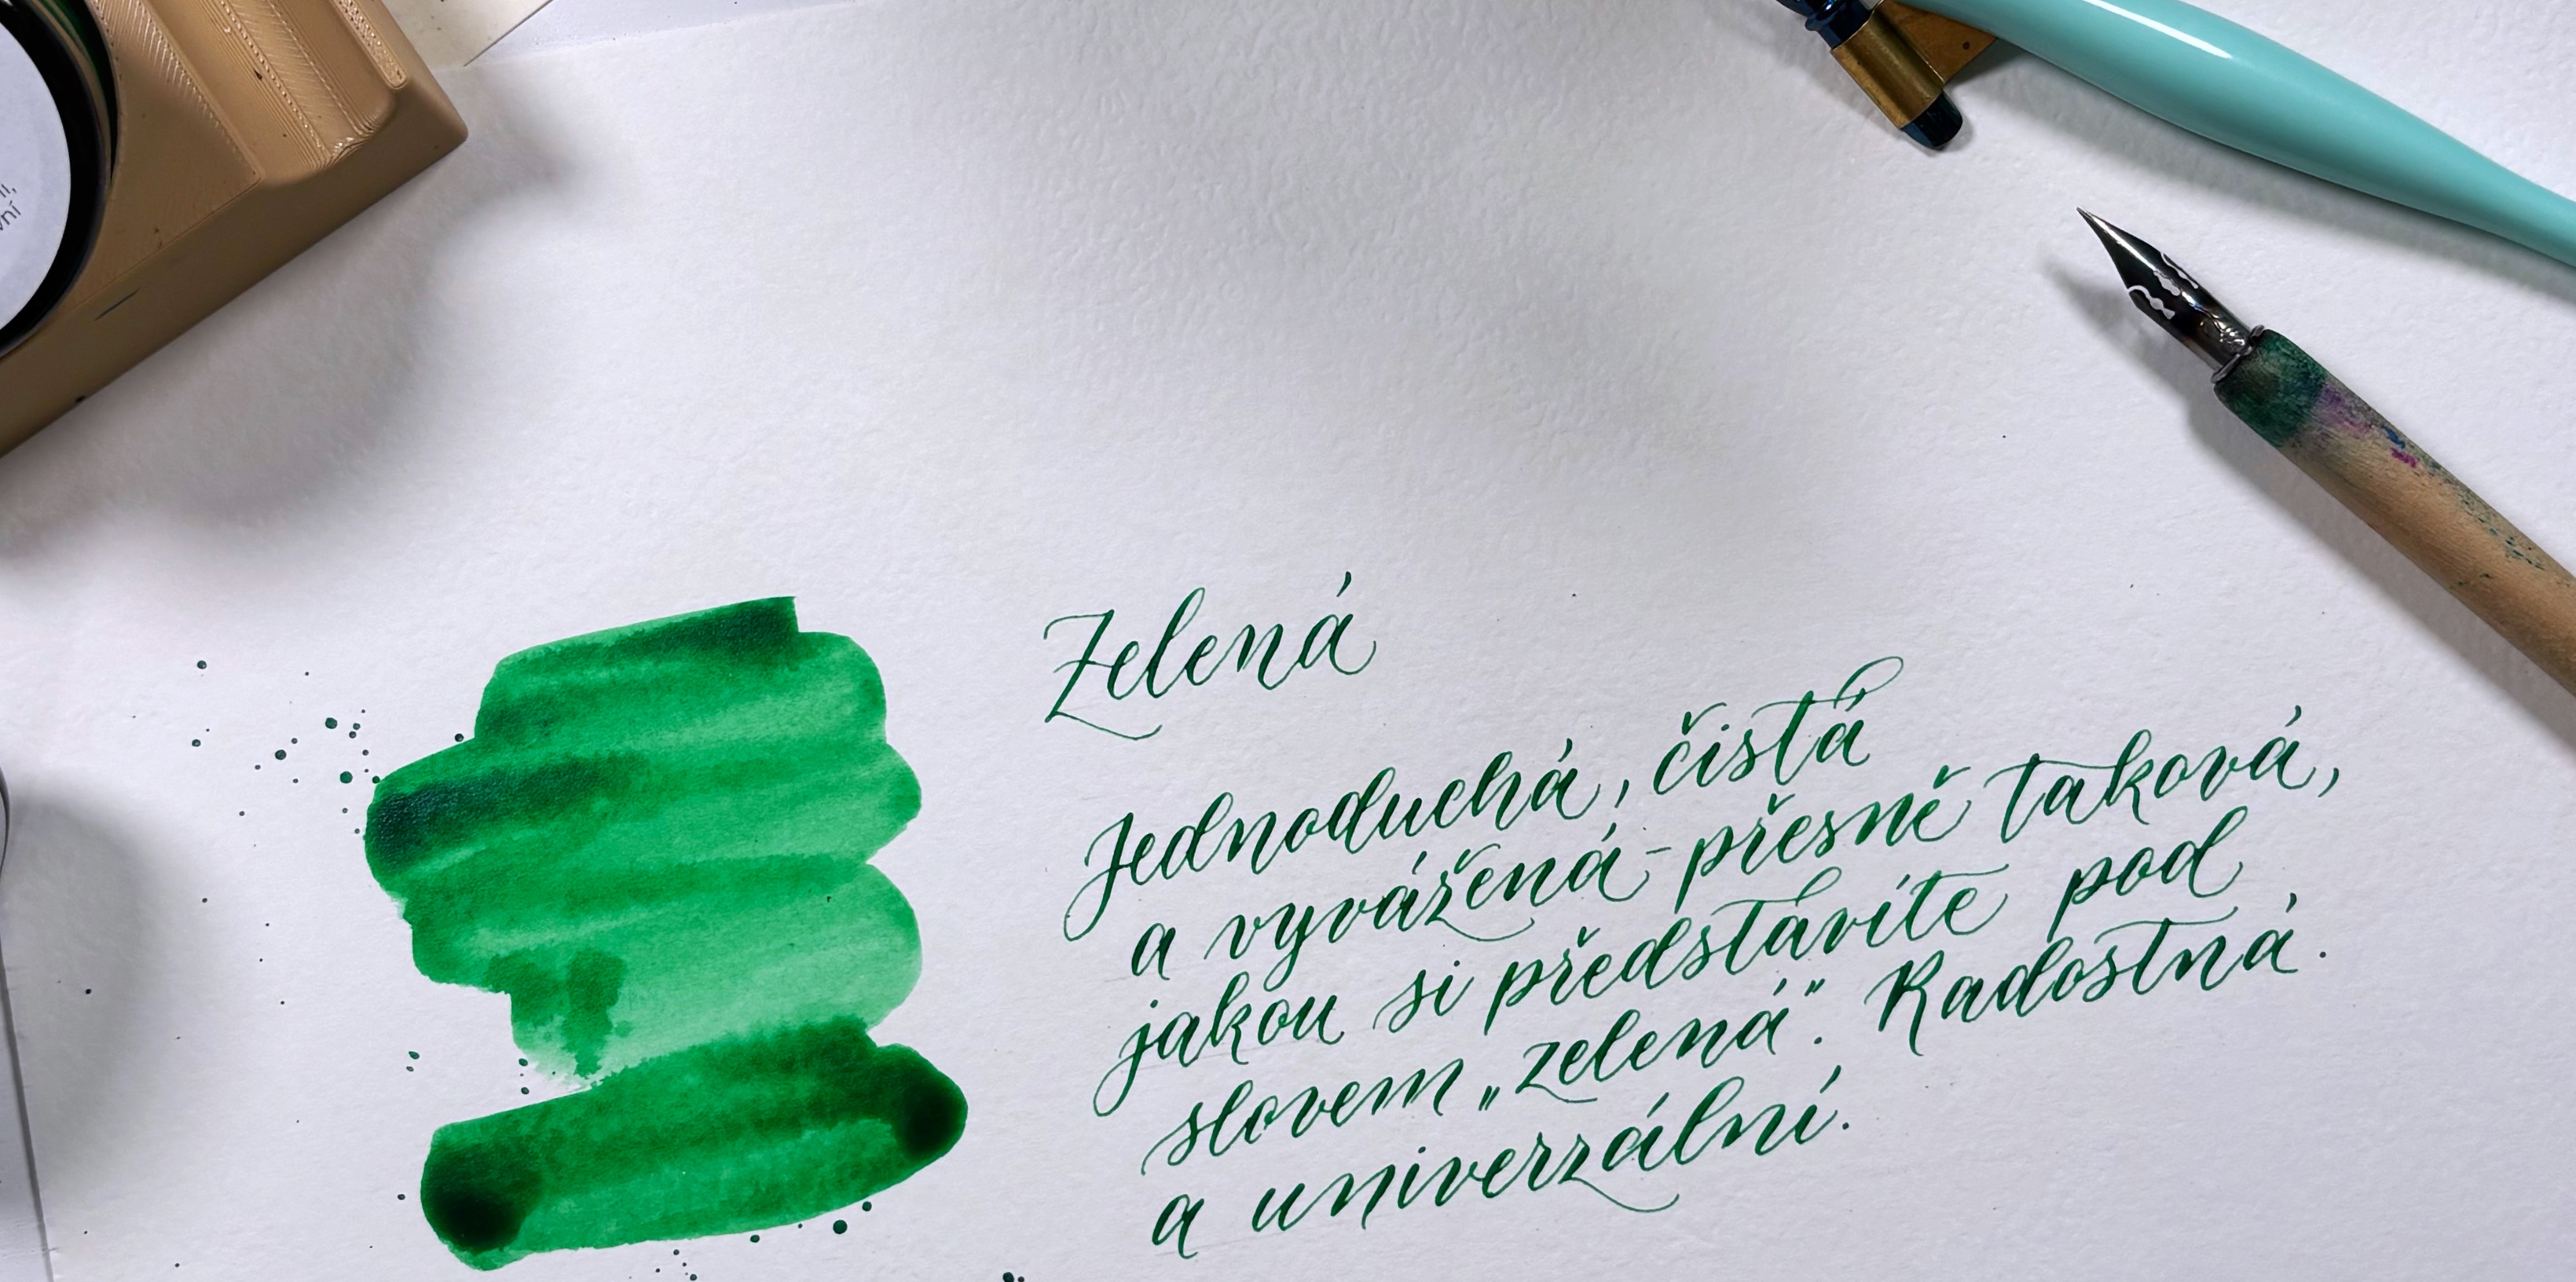 Zelená
Jednoduchá, čistá
a vyvážená - přesně taková,
jakou si představíte pod
slovem „zelená“. Radostná.
a univerzální.
vní